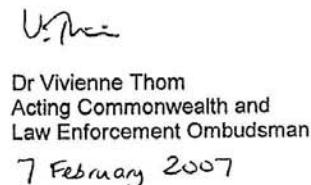 Dr Vivienne Thom
Acting Commonwealth and
Law Enforcement Ombudsman
7 February 2007